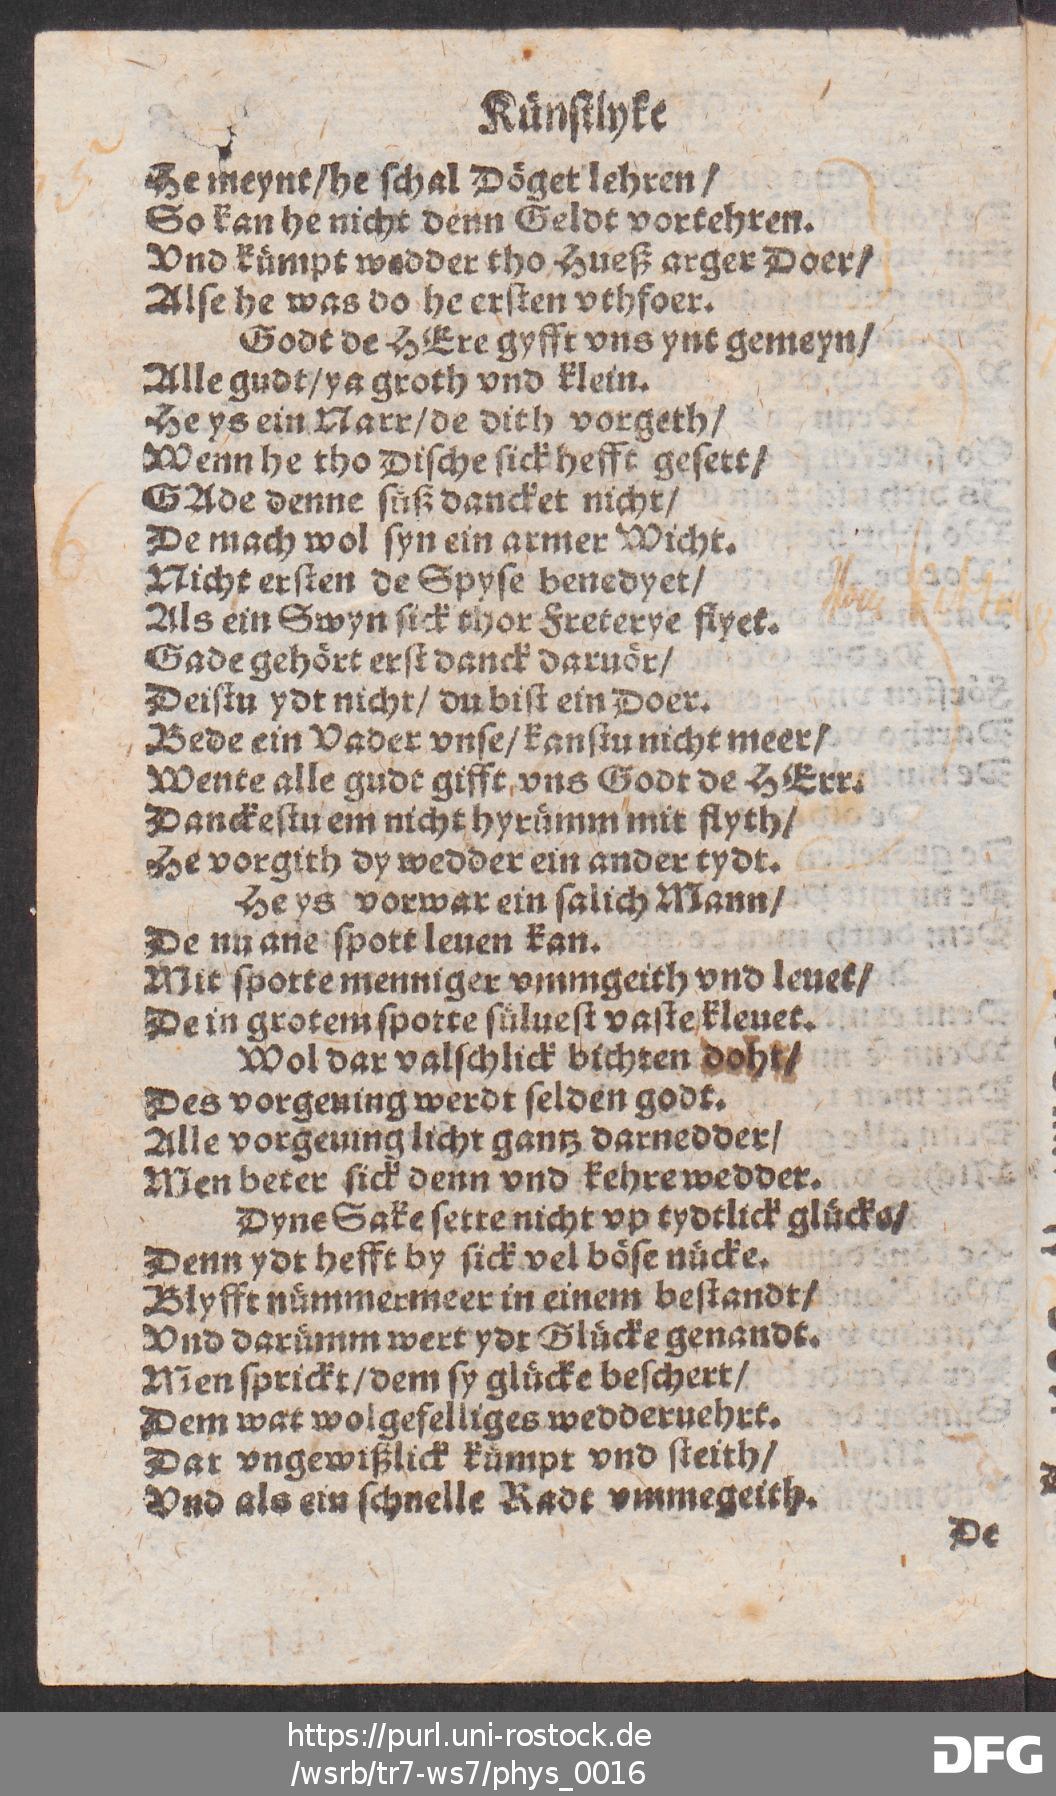 Künstlyke
He meynt/he schal Döget lehren/
So kan he nicht denn Geldt vortehren.
Vnd kümpt wedder tho Hueß arger Doer/
Alse he was do he ersten vthfoer.
Godt de HEre gyfft vns ynt gemeyn/
Alle gudt/ya groth vnd klein.
He ys ein Narr/de dith vorgeth/
Wenn he tho Dische sick hefft gesett/
GAde denne süß dancket nicht/
De mach wol syn ein armer Wicht.
Nicht ersten de Spyse benedyet/
Als ein Swyn sick thor Freterye flyet.
Gade gehört erst danck daruör/
Deistu ydt nicht/ du bist ein Doer.
Bede ein Vader vnse/kanstu nicht meer/
Wente alle gudt gifft vns Godt de HErr.
Danckestu em nicht hyrümm mit flyth/
He vorgith dy wedder ein ander tydt.
He ys vorwar ein salich Mann/
De nu ane spott leuen kan.
Mit spotte menniger vmmgeith vnd leuet/
De in grotem spotte süluest vaste kleuet.
Wol dar valschlick bichten doht/
Des vorgeuing werdt selden godt.
Alle vorgeuing licht gantz darnedder/
Men beter sick denn vnd kehre wedder.
Dyne Sake sette nicht vp tydtlick glücke/
Denn ydt hefft by sick vel böse nücke.
Blyfft nümmermeer in einem bestandt/
Vnd darümm wert ydt Glücke genandt.
Men sprickt/dem sy glücke beschert/
Dem wat wolgefelliges wedderuehrt.
Dat vngewißlick kümpt vnd steith/
Vnd als ein schnelle Radt vmmegeith.
De
6
https://purl.uni-rostock.de
/wsrb/tr7-ws7/phys_0016
DFG